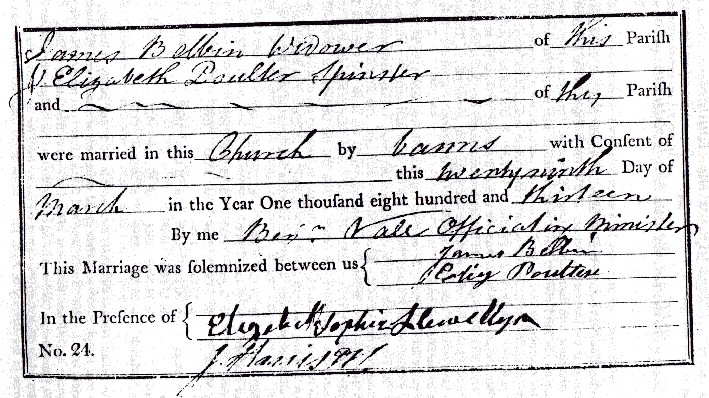 James Balbin Widower of this Pariſh
& Elizabeth Poulter Spinster
and of this Pariſh
were married in this Church by banns with Conſent of
this twenty ninth Day of
March in the Year One thouſand eight hundred and thirteen
By me Benjn Vale Officiating Minister
This Marriage was ſolemnized between us { James Balbin
Eliz Poulter
In the Preſence of { Elizabeth Sophia Llewellyn
No. 24. J. Harris